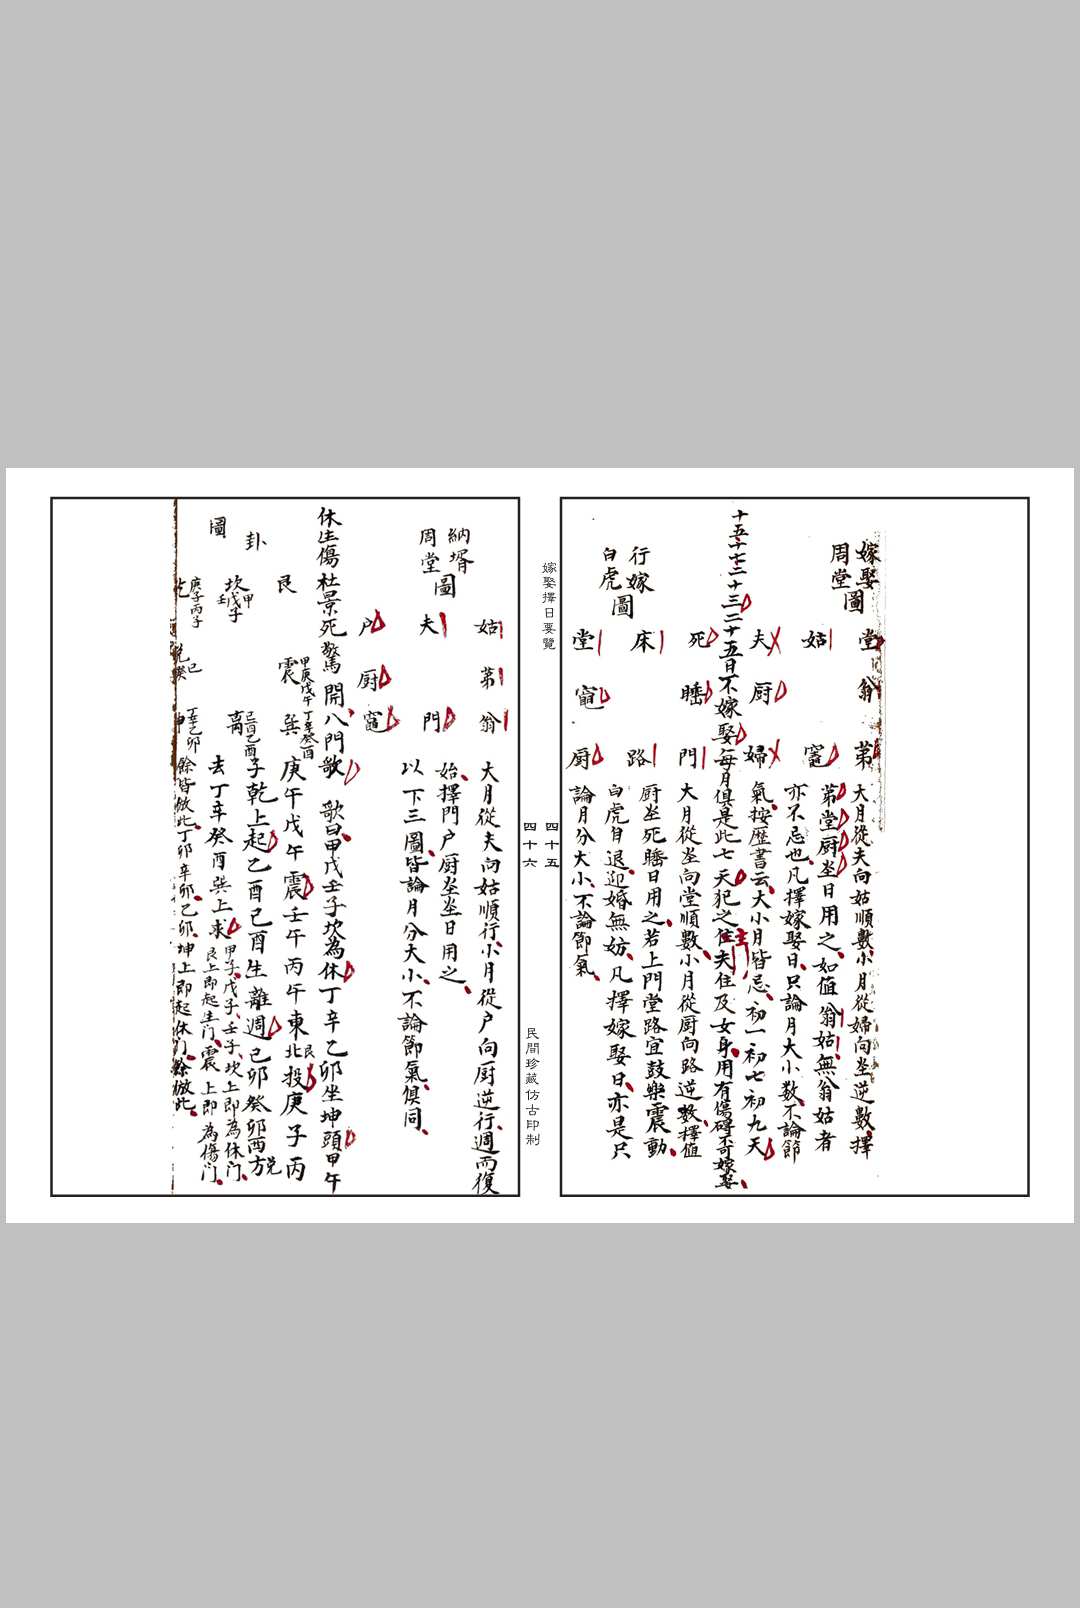 嫁娶
周堂圖
堂 翁 第
姑 竈
夫 厨 婦
大月從夫向姑順數小月從婦向坐逆數擇
第堂厨坐日用之如值翁姑無翁姑者
亦不忌也凡擇嫁娶日只論月大小数不論節
氣按歷書云大小月皆忌初一初七初九天
十五十七二十三二十五日不嫁娶每月俱是此七天犯之住夫住及女身用有傷碍不可嫁娶
行嫁
白虎圖
死 睡 門
床 路
堂 竈 厨
大月從坐向堂順數小月從厨向路逆數擇值
厨坐死睡日用之若上門堂路宜鼓樂震動
白虎自退迎婚無妨凡擇嫁娶日亦是只
論月分大小不論節氣
嫁娶擇日要覽
四十五
四十六
民間珍藏仿古印制
納壻
周堂圖
姑 第 翁
夫 門
户 厨 竈
大月從夫向姑順行小月從户向厨逆行週而復
始擇門户厨坐坐日用之
以下三圖皆論月分大小不論節氣俱同
休生傷杜景死驚開八門歌
歌曰甲戊壬子坎為休丁辛乙卯坐坤頭甲午
庚午戊午震壬午丙午東北艮投庚子丙
子乾上起乙酉己酉生離週己卯癸卯西方兑
去丁辛癸酉巽上求
甲子戊子壬子坎上即為休门
艮上即起生门震上即為傷门
餘皆倣此丁卯辛卯乙卯坤上即起休门餘倣此
卦
圖
艮
震 甲庚戊午
巽 丁辛癸酉
坎 甲戊壬子
離 己酉乙酉
庚子丙子
丁辛乙卯